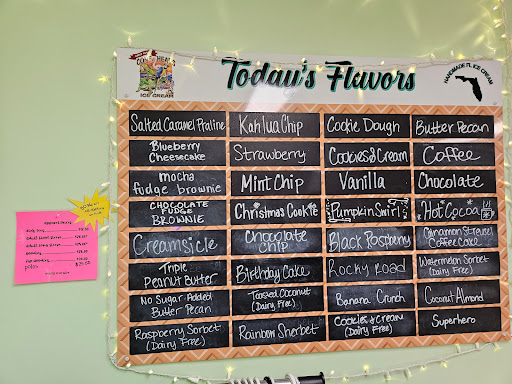 CONE HEADS
ICE CREAM
Today's Flavors
HANDMADE FL ICE CREAM
Salted Caramel Praline
Kahlua Chip
Cookie Dough
Butter Pecan
Blueberry
Cheesecake
Strawberry
Cookies & Cream
Coffee
Mocha
fudge brownie
Mint Chip
Vanilla
Chocolate
CHOCOLATE
FUDGE
BROWNIE
Christmas Cookie
Pumpkin Swirl
Hot Cocoa
Creamsicle
Chocolate
Chip
Black Raspberry
Cinnamon Streusel
Coffee Cake
Triple
Peanut Butter
Birthday Cake
Rocky Road
Watermelon Sorbet
(Dairy Free)
No Sugar Added
Butter Pecan
Toasted Coconut
(Dairy Free)
Banana Crunch
Coconut Almond
Raspberry Sorbet
(Dairy Free)
Rainbow Sherbet
Cookies & Cream
(Dairy Free)
Superhero